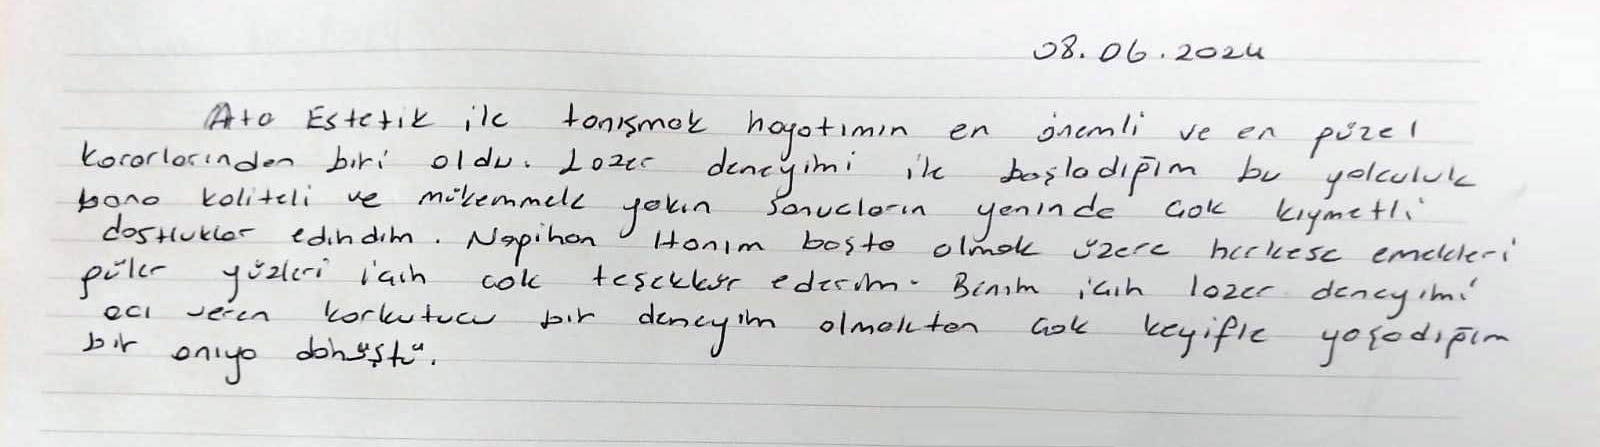 08.06.2024
Ata Estetik ile tanışmak hayatımın en önemli ve en güzel
kararlarından biri oldu. Lazer deneyimi ile başladığım bu yolculuk
bana kaliteli ve mükemmele yakın sonuçların yanında çok kıymetli
dostluklar edindim. Nagihan Hanım başta olmak üzere herkese emekleri
güler yüzleri için çok teşekkür ederim. Benim için lazer deneyimi
acı veren korkutucu bir deneyim olmaktan çok keyifle yaşadığım
bir anıya dönüştü.